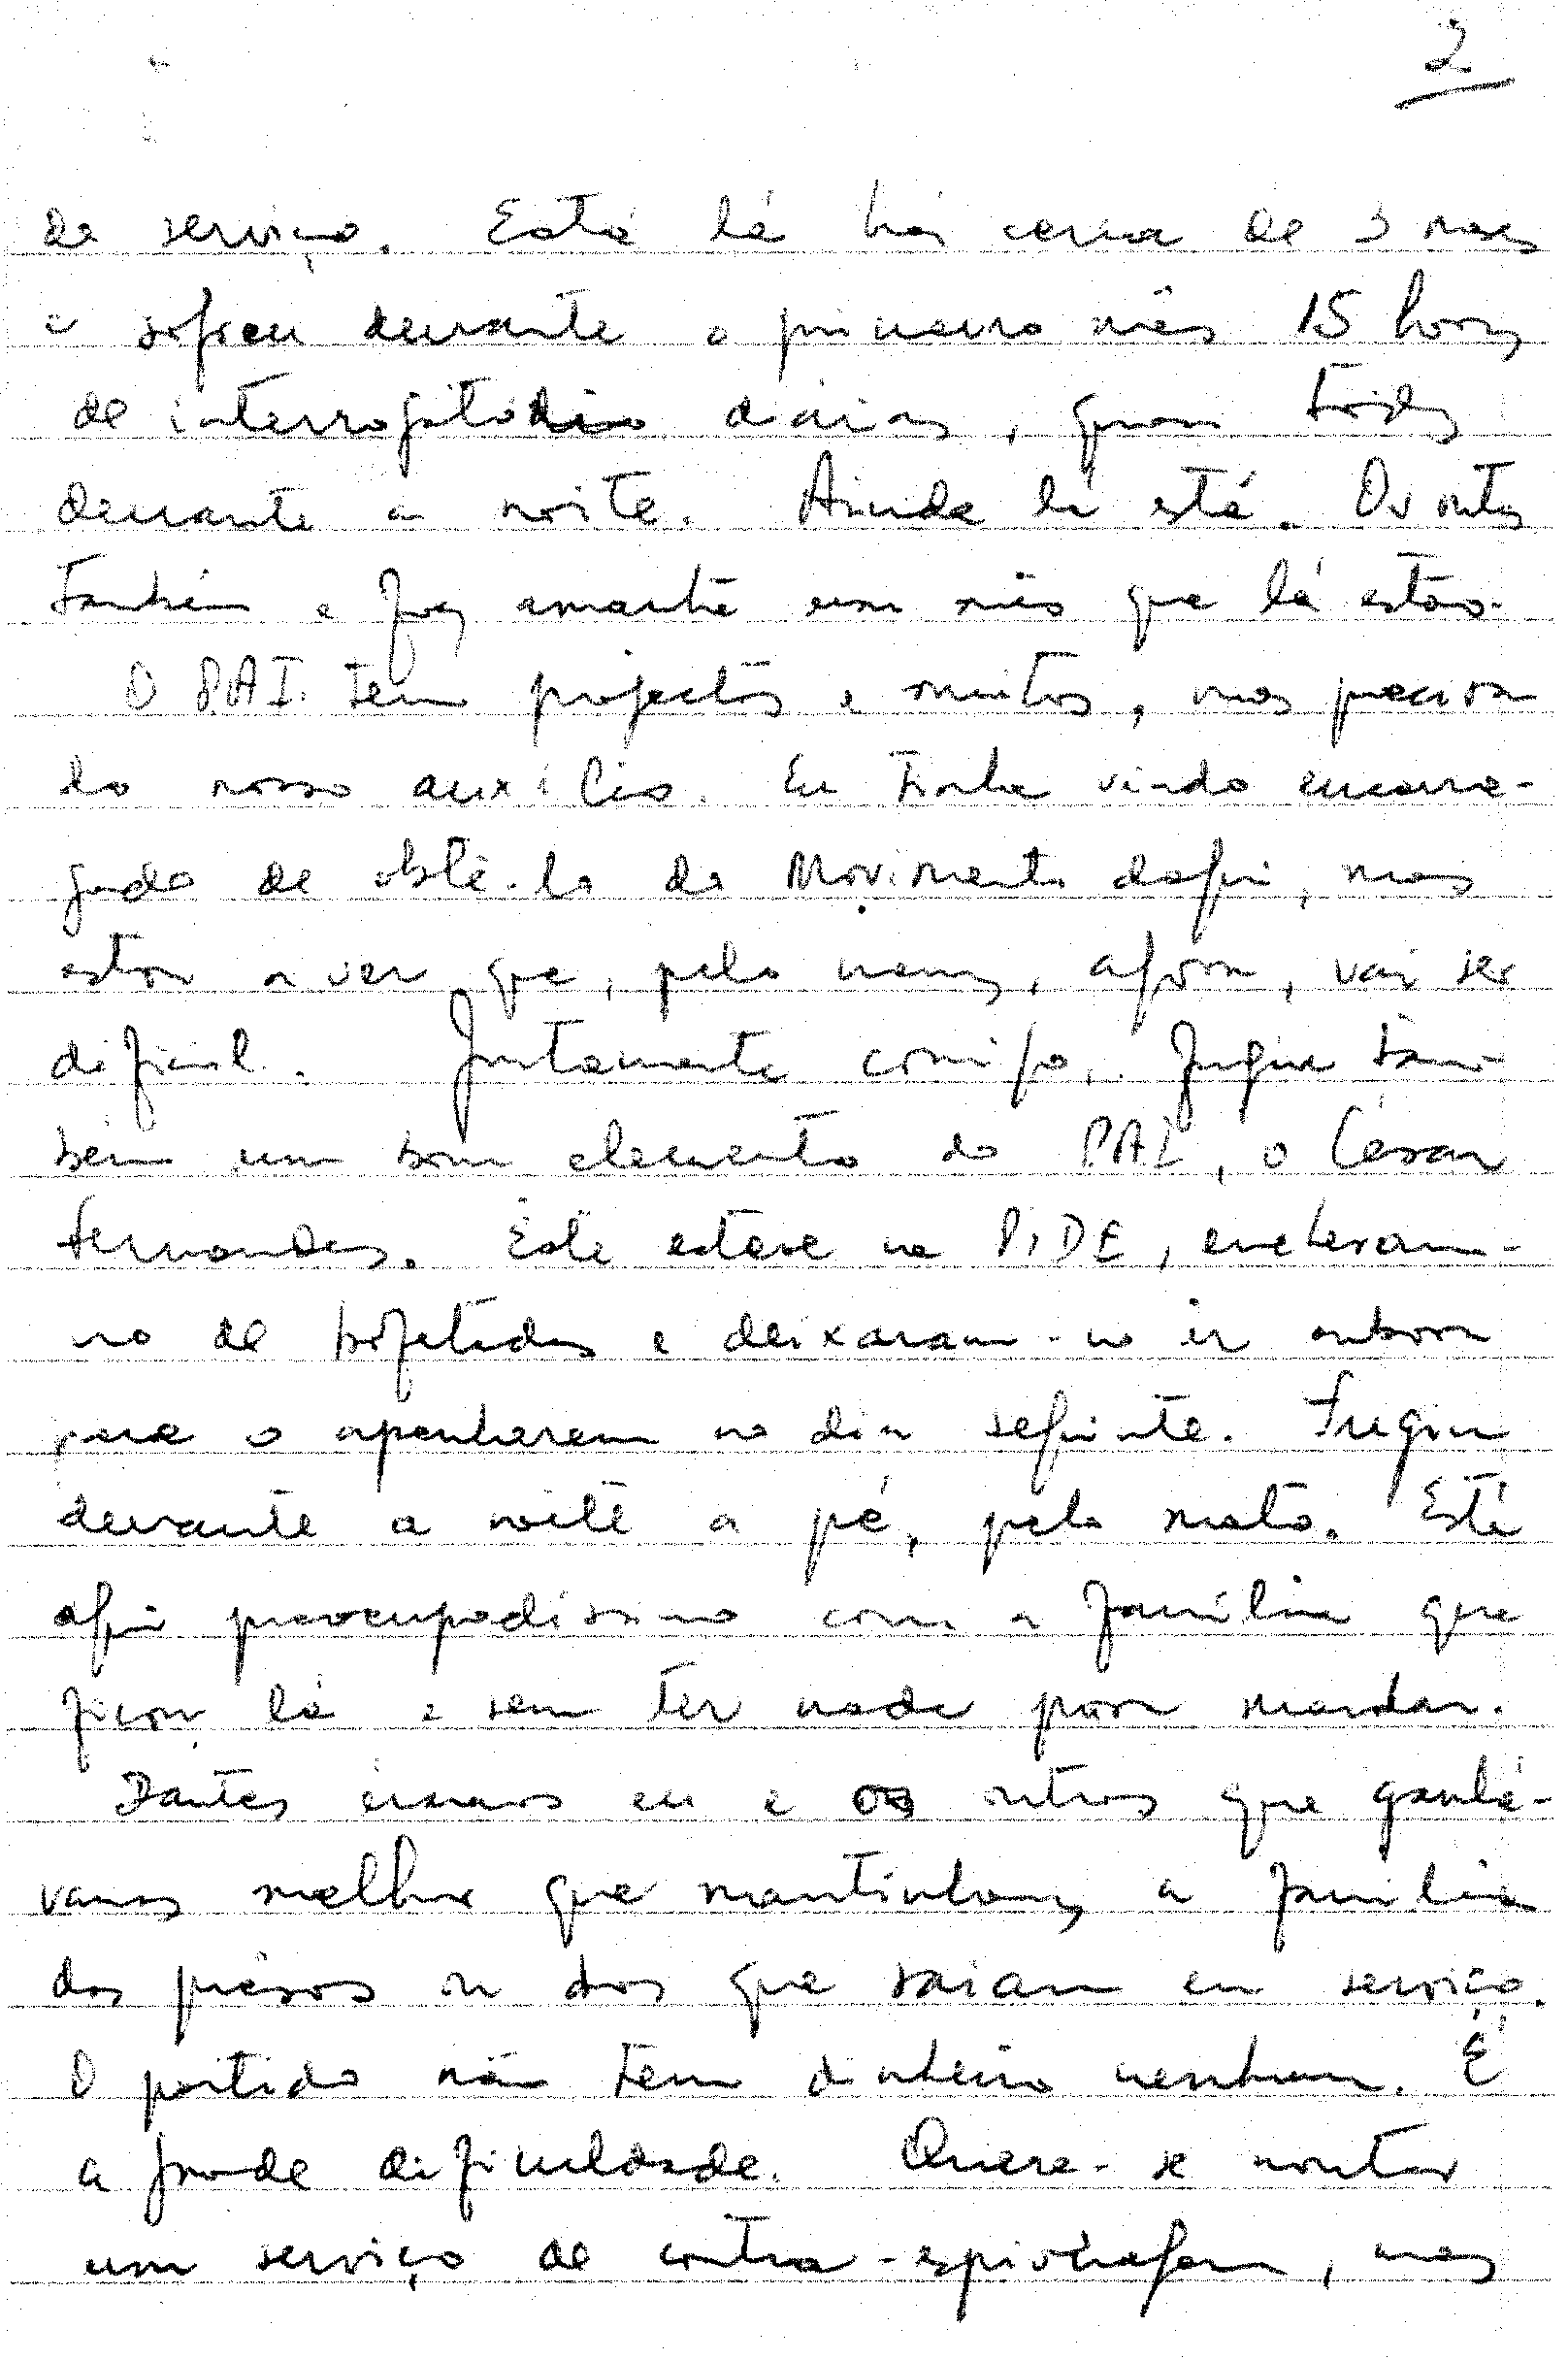 2
de serviço. Está lá há cerca de 3 meses
e sofreu durante o primeiro mês 15 horas
de interrogatório diárias, quasi todas
durante a noite. Ainda lá está. Os outros
também e faz amanhã um mês que lá estão.
O P.A.I. tem projectos e muitos, mas precisa
do nosso auxílio. Eu tinha vindo encarre-
gado de obtê-lo do Movimento daqui, mas
estou a ver que, pelo menos, agora, vai ser
difícil. Juntamente comigo, fugiu tam-
bém um bom elemento do P.A.I., o César
Fernandes. Este esteve na PIDE, encheram-
no de bofetadas e deixaram-no ir embora
para o apanharem no dia seguinte. Fugiu
durante a noite a pé, pelo mato. Está
aqui preocupadíssimo com a família que
ficou lá e sem ter nada para mandar.
Dantes éramos eu e os outros que ganhá-
vamos melhor que mantinhamos a família
dos presos ou dos que saíam em serviço.
O partido não tem dinheiro nenhum. É
a grande dificuldade. Quere-se montar
um serviço de contra-espionagem, mas